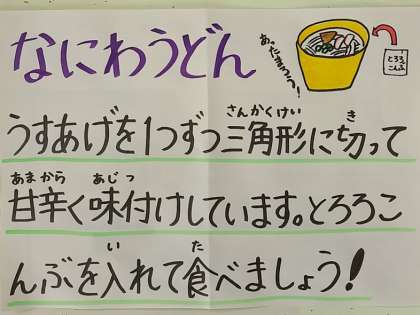 なにわうどん
あったまろう!
とろろ
こんぶ
さんかくけい き
うすあげを1つずつ三角形に切って
あまから あじつ
甘辛く味付けしています。とろろこ
い た
んぶを入れて食べましょう!